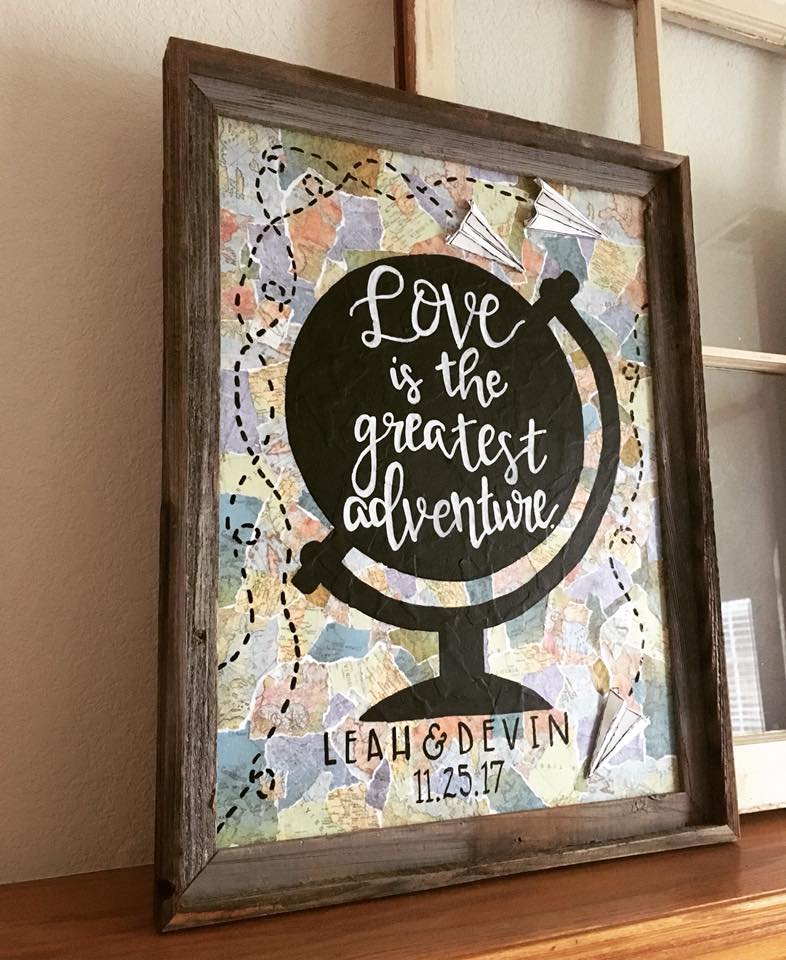 Love
is the
greatest
adventure.
LEAH & DEVIN
11.25.17